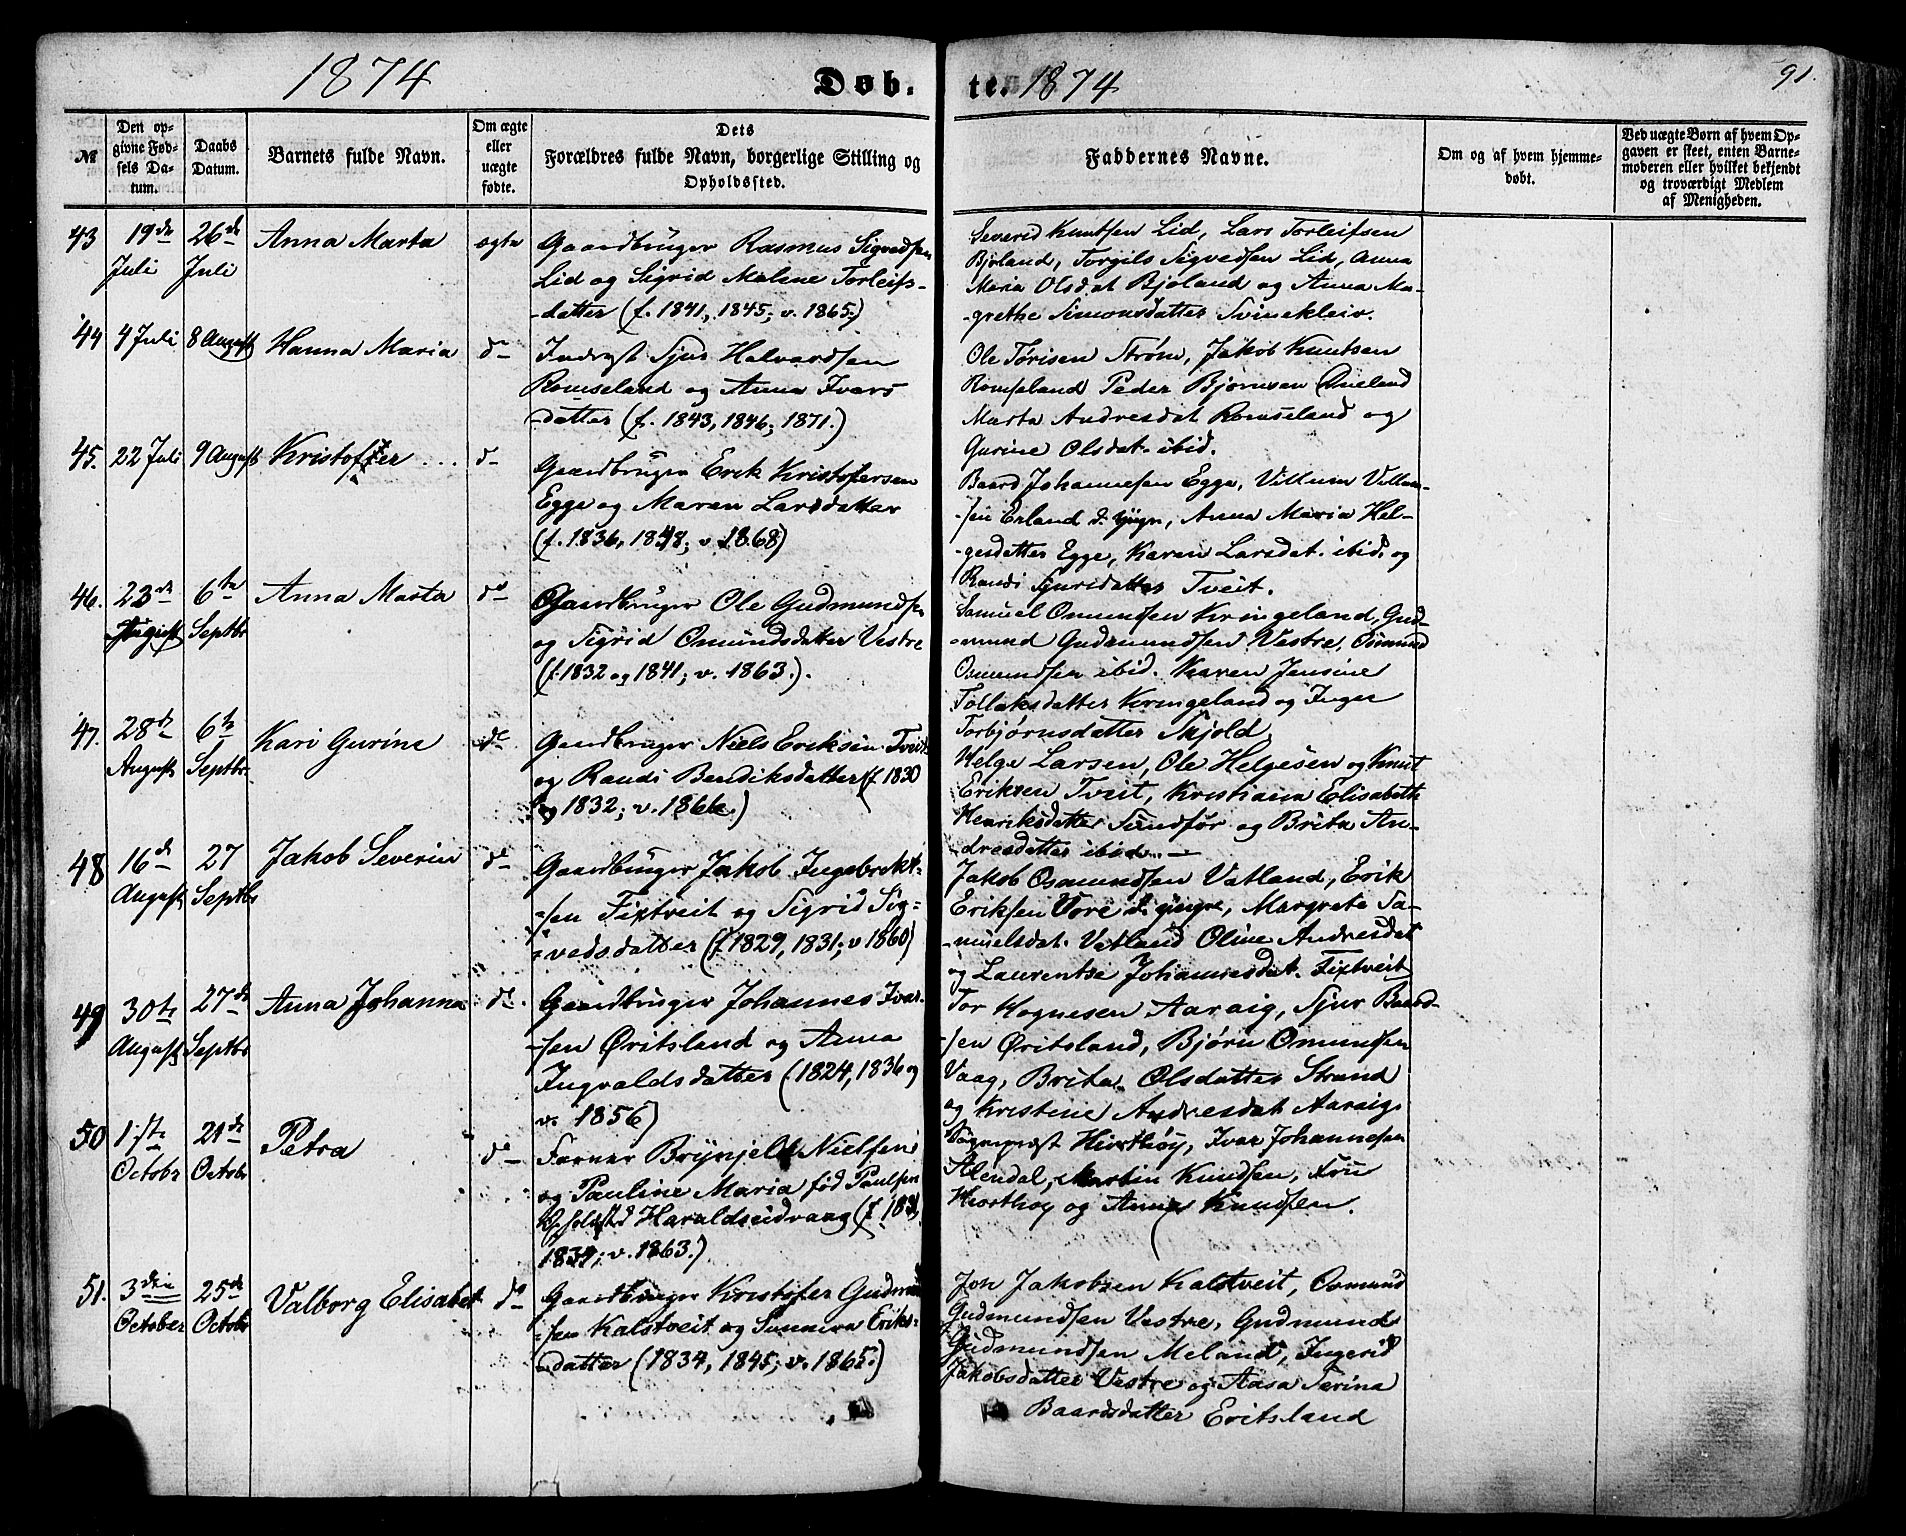 1874 Døb. te. 1874 91.
№
Den op-
givne Fød-
sels Da-
tum.
Daabs
Datum.
Barnets fulde Navn.
Om ægte
eller
uægte
fødte.
Dets
Forældres fulde Navn, borgerlige Stilling og
Opholdssted.
Faddernes Navne.
Om og af hvem hjemme-
døbt.
Ved uægte Børn af hvem Op-
gaven er skeet, enten Barne-
moderen eller hvilket bekjendt
og troværdigt Medlem
af Menigheden.
43 19de Juli 26de Juli Anna Marta ægte
Gaardbruger Rasmus Sigvedsen
Lid og Sigrid Malene Torleifs-
-datter (f. 1841, 1845; v. 1865.)
Severid Knutsen Lid, Lars Torleifsen
Bjoland, Torgils Sigvedsen Lid, Anna
Maria Olsdat Bjoland og Anna Ma-
-grethe Simonsdatter Svinekleiv.
44 4 Juli 8 August Hanna Maria do
Inderst Sjur Halvardsen
Romseland og Anna Ivars
-datter (f. 1843, 1846; 1871.)
Ole Torisen Strøm, Jakob Knutsen
Romseland Peder Bjørnsen
Marta Andresdat Romseland og
Gurine Olsdat. ibid.
45. 22 Juli 9 August Kristoffer ... do
Gaardbruger Erik Kristofersen
Egge og Maren Larsdatter
(f. 1836, 1848; v. 1868)
Baard Johannesen Egge, Villum Villum-
-sen Erland d. yngr, Anna Maria Hel-
-gesdatter Egge, Karen Larsdat. ibid. og
Randi Sjursdatter Tveit.
46. 23de August 6te Septbr Anna Marta do
Gaardbruger Ole Gudmundsen
og Sigrid Osmundsdatter Vestre
(f. 1832 og 1841; v. 1863.).
Samuel Osmundsen Kringeland, Gud-
-mund Gudmundsen Vestre, Osmund
Osmundsen ibid. Karen Jensine
Tollaksdatter Kringeland og Inger
Torbjørnsdatter Skjold
47. 28de August 6te Septbr. Kari Gurine do
Gaardbruger Niels Eriksen Tveit
og Randi Bendiksdatter (f. 1830
og 1832; v. 1866.)
Helge Larsen, Ole Helgesen og Knut
Eriksen Tveit, Kristiana Elisabeth
Henriksdatter Sundfør og Brita An-
dresdatter ibid. —
48 16de August 27 Septbr Jakob Severin do
Gaardbruger Jakob Ingebrekt-
-sen Fixtveit og Sigrid Sig-
-vedsdatter (f. 1829, 1831; v 1860)
Jakob Osmundsen Vatland, Erik
Eriksen Vore d. yngre, Margrete Sa-
-muelsdat. Vatland Oline Andresdat
og Laurentse Johannesdat. Fixtveit
49 30te August 27de Septbr Anna Johanna do.
Gaardbruger Johannes Ivar-
-sen Øritsland og Anna
Ingvaldsdatter (1824, 1836 og
v. 1856)
Tor Hognesen Aaraig, Sjur Baard-
-sen Øritsland, Bjørn Omundsen
Vaag, Brita Olsdatter Strand
og Kristine Andresdat Aaraig.
50 1ste Octobr 21de Octobr Petra do
Farver Brynjeld Nielsen
og Pauline Maria fød Paulsen
Opholdsted Haraldseidvaag (f. 183
1837; v. 1863.)
Sognepræst Hiorthøy, Ivar Johannesen
Alendal, Martin Knudsen, Fru
Hiorthøy og Anna Knudsen.
51. 3die October 25de Octobr Valborg Elisabet do
Gaardbruger Kristofer Gudmund
-sen Kalstveit og Sunneva Eriks-
-datter (1834, 1845; v. 1865.)
Jon Jakobsen Kalstveit, Osmund
Gudmundsen Vestre, Gudmund
Gudmundsen Meland, Ingerid
Jakobsdatter Vestre og Aasa Serina
Baardsdatter Eritsland